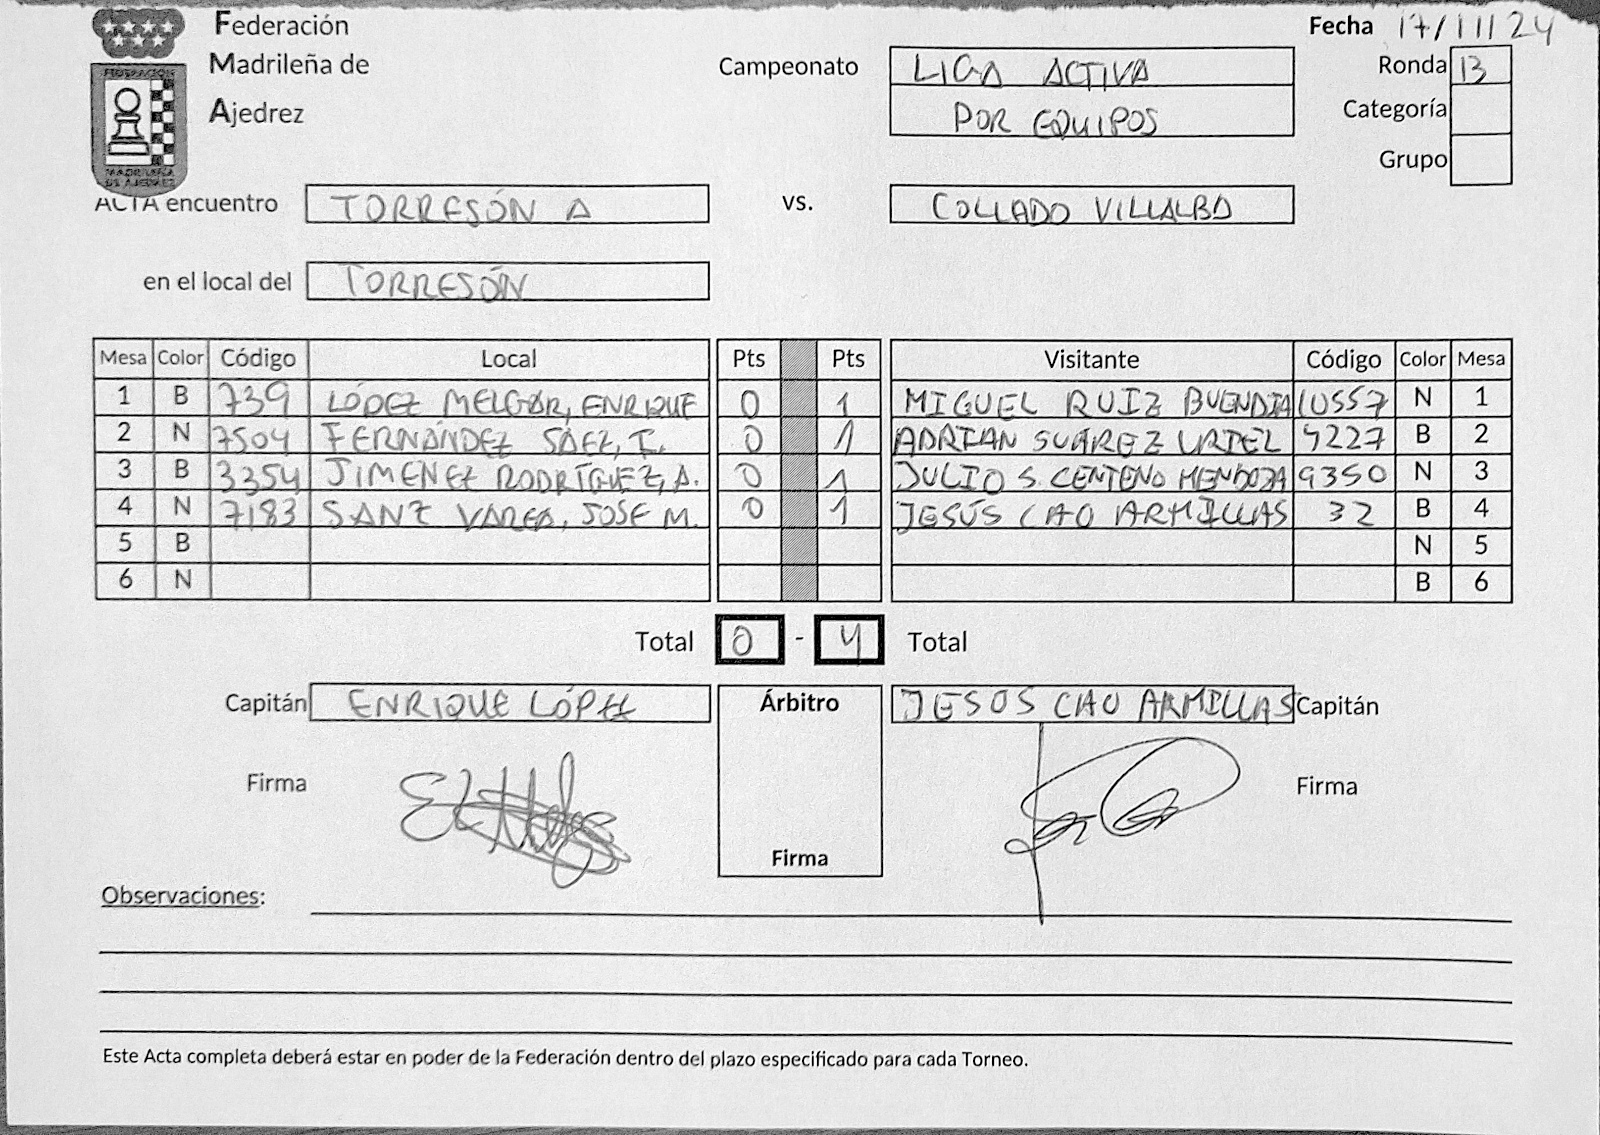 Federación Fecha 17/11/24
Madrileña de Campeonato LIGA ACTIVA Ronda 13
Ajedrez POR EQUIPOS Categoría
Grupo
FEDERACION
MADRILEÑA
DE AJEDREZ
ACTA encuentro TORRESÓN A vs. COLLADO VILLALBA
en el local del TORRESÓN
Mesa Color Código Local Pts Pts Visitante Código Color Mesa
1 B 739 LÓPEZ MELGAR, ENRIQUE 0 1 MIGUEL RUIZ BUENDIA 10557 N 1
2 N 7504 FERNÁNDEZ SÁEZ, I. 0 1 ADRIAN SUÁREZ URIEL 9227 B 2
3 B 3354 JIMENEZ RODRÍGUEZ, A. 0 1 JULIO S. CENTENO MENDOZA 9350 N 3
4 N 7183 SANZ VAREA, JOSE M. 0 1 JESÚS CAO ARMILLAS 32 B 4
5 B N 5
6 N B 6
Total 0 - 4 Total
Capitán ENRIQUE LÓPEZ Árbitro JESOS CAO ARMILLAS Capitán
Firma Firma
Firma
Observaciones:
Este Acta completa deberá estar en poder de la Federación dentro del plazo especificado para cada Torneo.